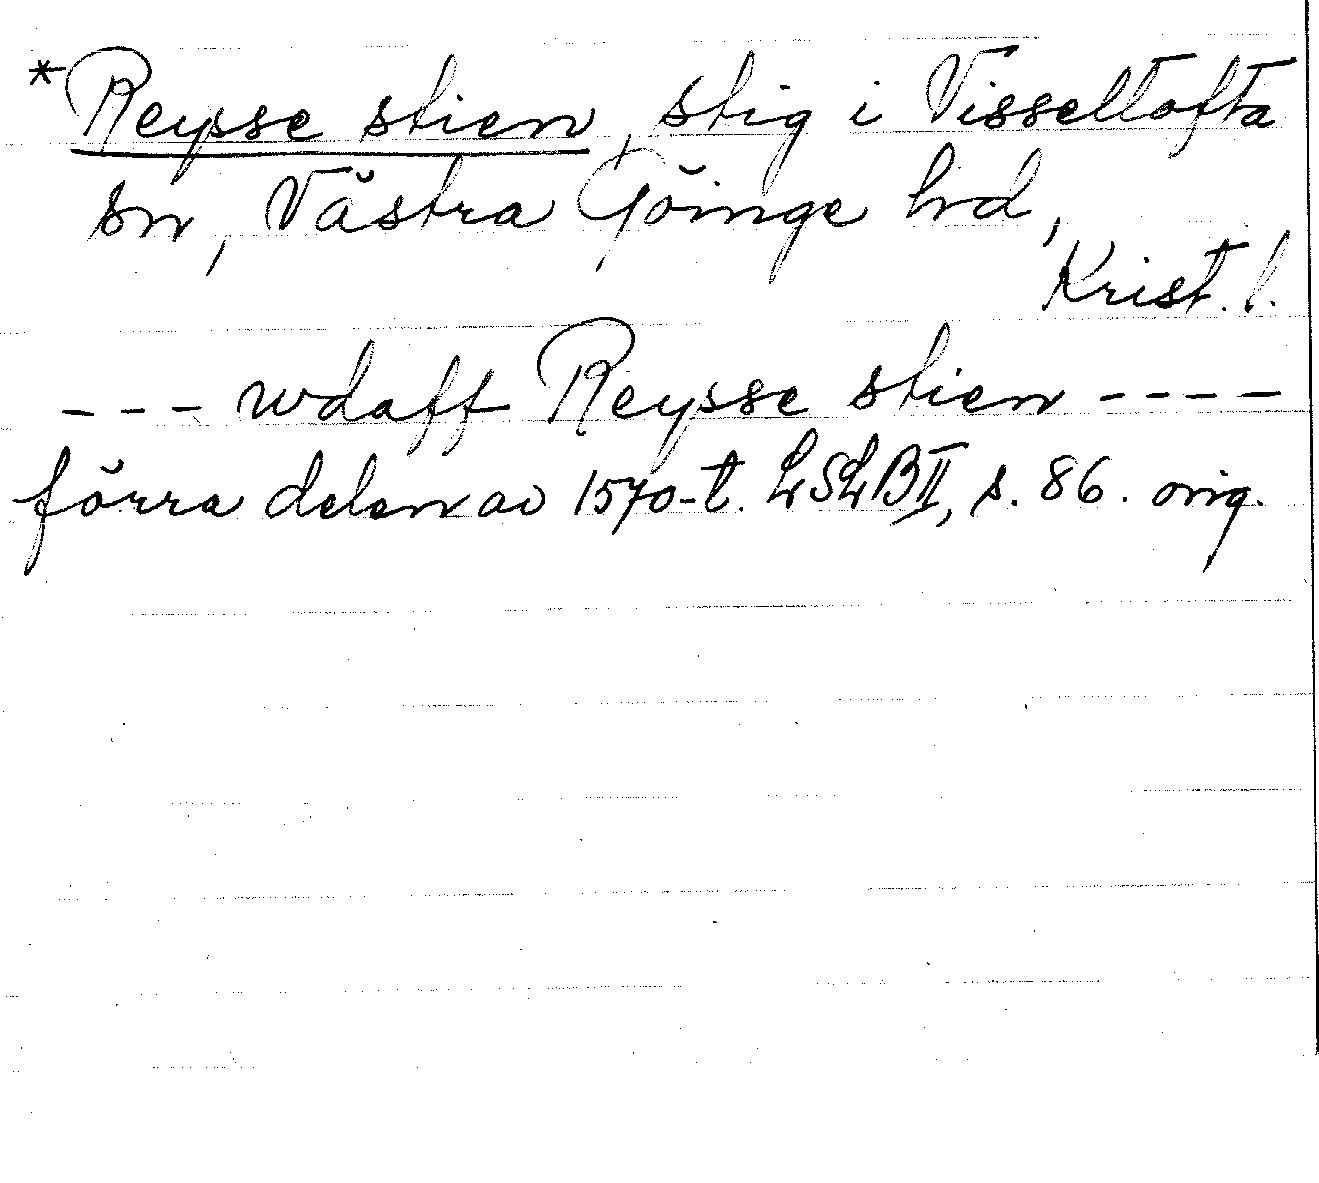 *Reysse stien, stig i Visseltofta
sn, Västra Göinge hd,
Krist. l.
--- wdaff Reysse stien ----
förra delen av 1570-t. LSLB II, s. 86. orig.